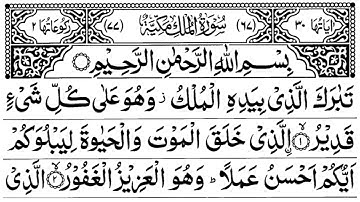 اٰیَاتُهَا ٣٠ (٦٧) سُوْرَةُ الْمُلْكِ مَكِّیَّةٌ (٧٧) رُكُوْعَاتُهَا ٢
بِسْمِ اللّٰهِ الرَّحْمٰنِ الرَّحِیْمِ
تَبٰرَكَ الَّذِیْ بِیَدِهِ الْمُلْكُ ز وَهُوَ عَلٰی كُلِّ شَیْءٍ
قَدِیْرُ ۙ﴿١﴾ اِ۟لَّذِیْ خَلَقَ الْمَوْتَ وَالْحَیٰوةَ لِیَبْلُوَكُمْ
اَیُّكُمْ اَحْسَنُ عَمَلًا ؕ وَهُوَ الْعَزِیْزُ الْغَفُوْرُ ۙ﴿٢﴾ الَّذِیْ